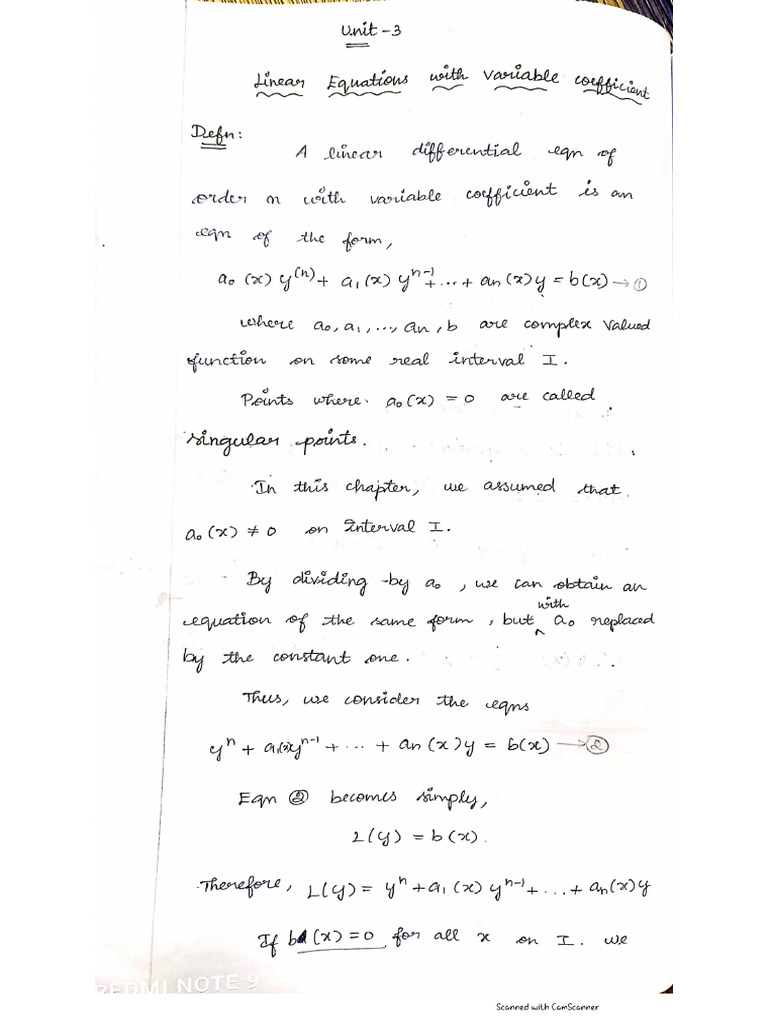 Unit - 3
Linear Equations with Variable coefficient
Defn:
A linear differential eqn of
order n with variable coefficient is an
eqn of the form,
a₀ (x) y⁽ⁿ⁾ + a₁(x) yⁿ⁻¹ + ... + an(x)y = b(x) → ①
where a₀, a₁, ..., an, b are complex valued
function on some real interval I.
Points where a₀(x) = 0 are called
singular points.
In this chapter, we assumed that
a₀(x) ≠ 0 on Interval I.
By dividing by a₀, we can obtain an
with
equation of the same form, but ^ a₀ replaced
by the constant one.
Thus, we consider the eqns
yⁿ + a₁(x)yⁿ⁻¹ + ... + an(x)y = b(x) → ②
Eqn ② becomes simply,
L(y) = b(x).
Therefore, L(y) = yⁿ + a₁(x) yⁿ⁻¹ + ... + an(x)y
If b(x) = 0 for all x on I. we
REDMI NOTE 9
Scanned with CamScanner